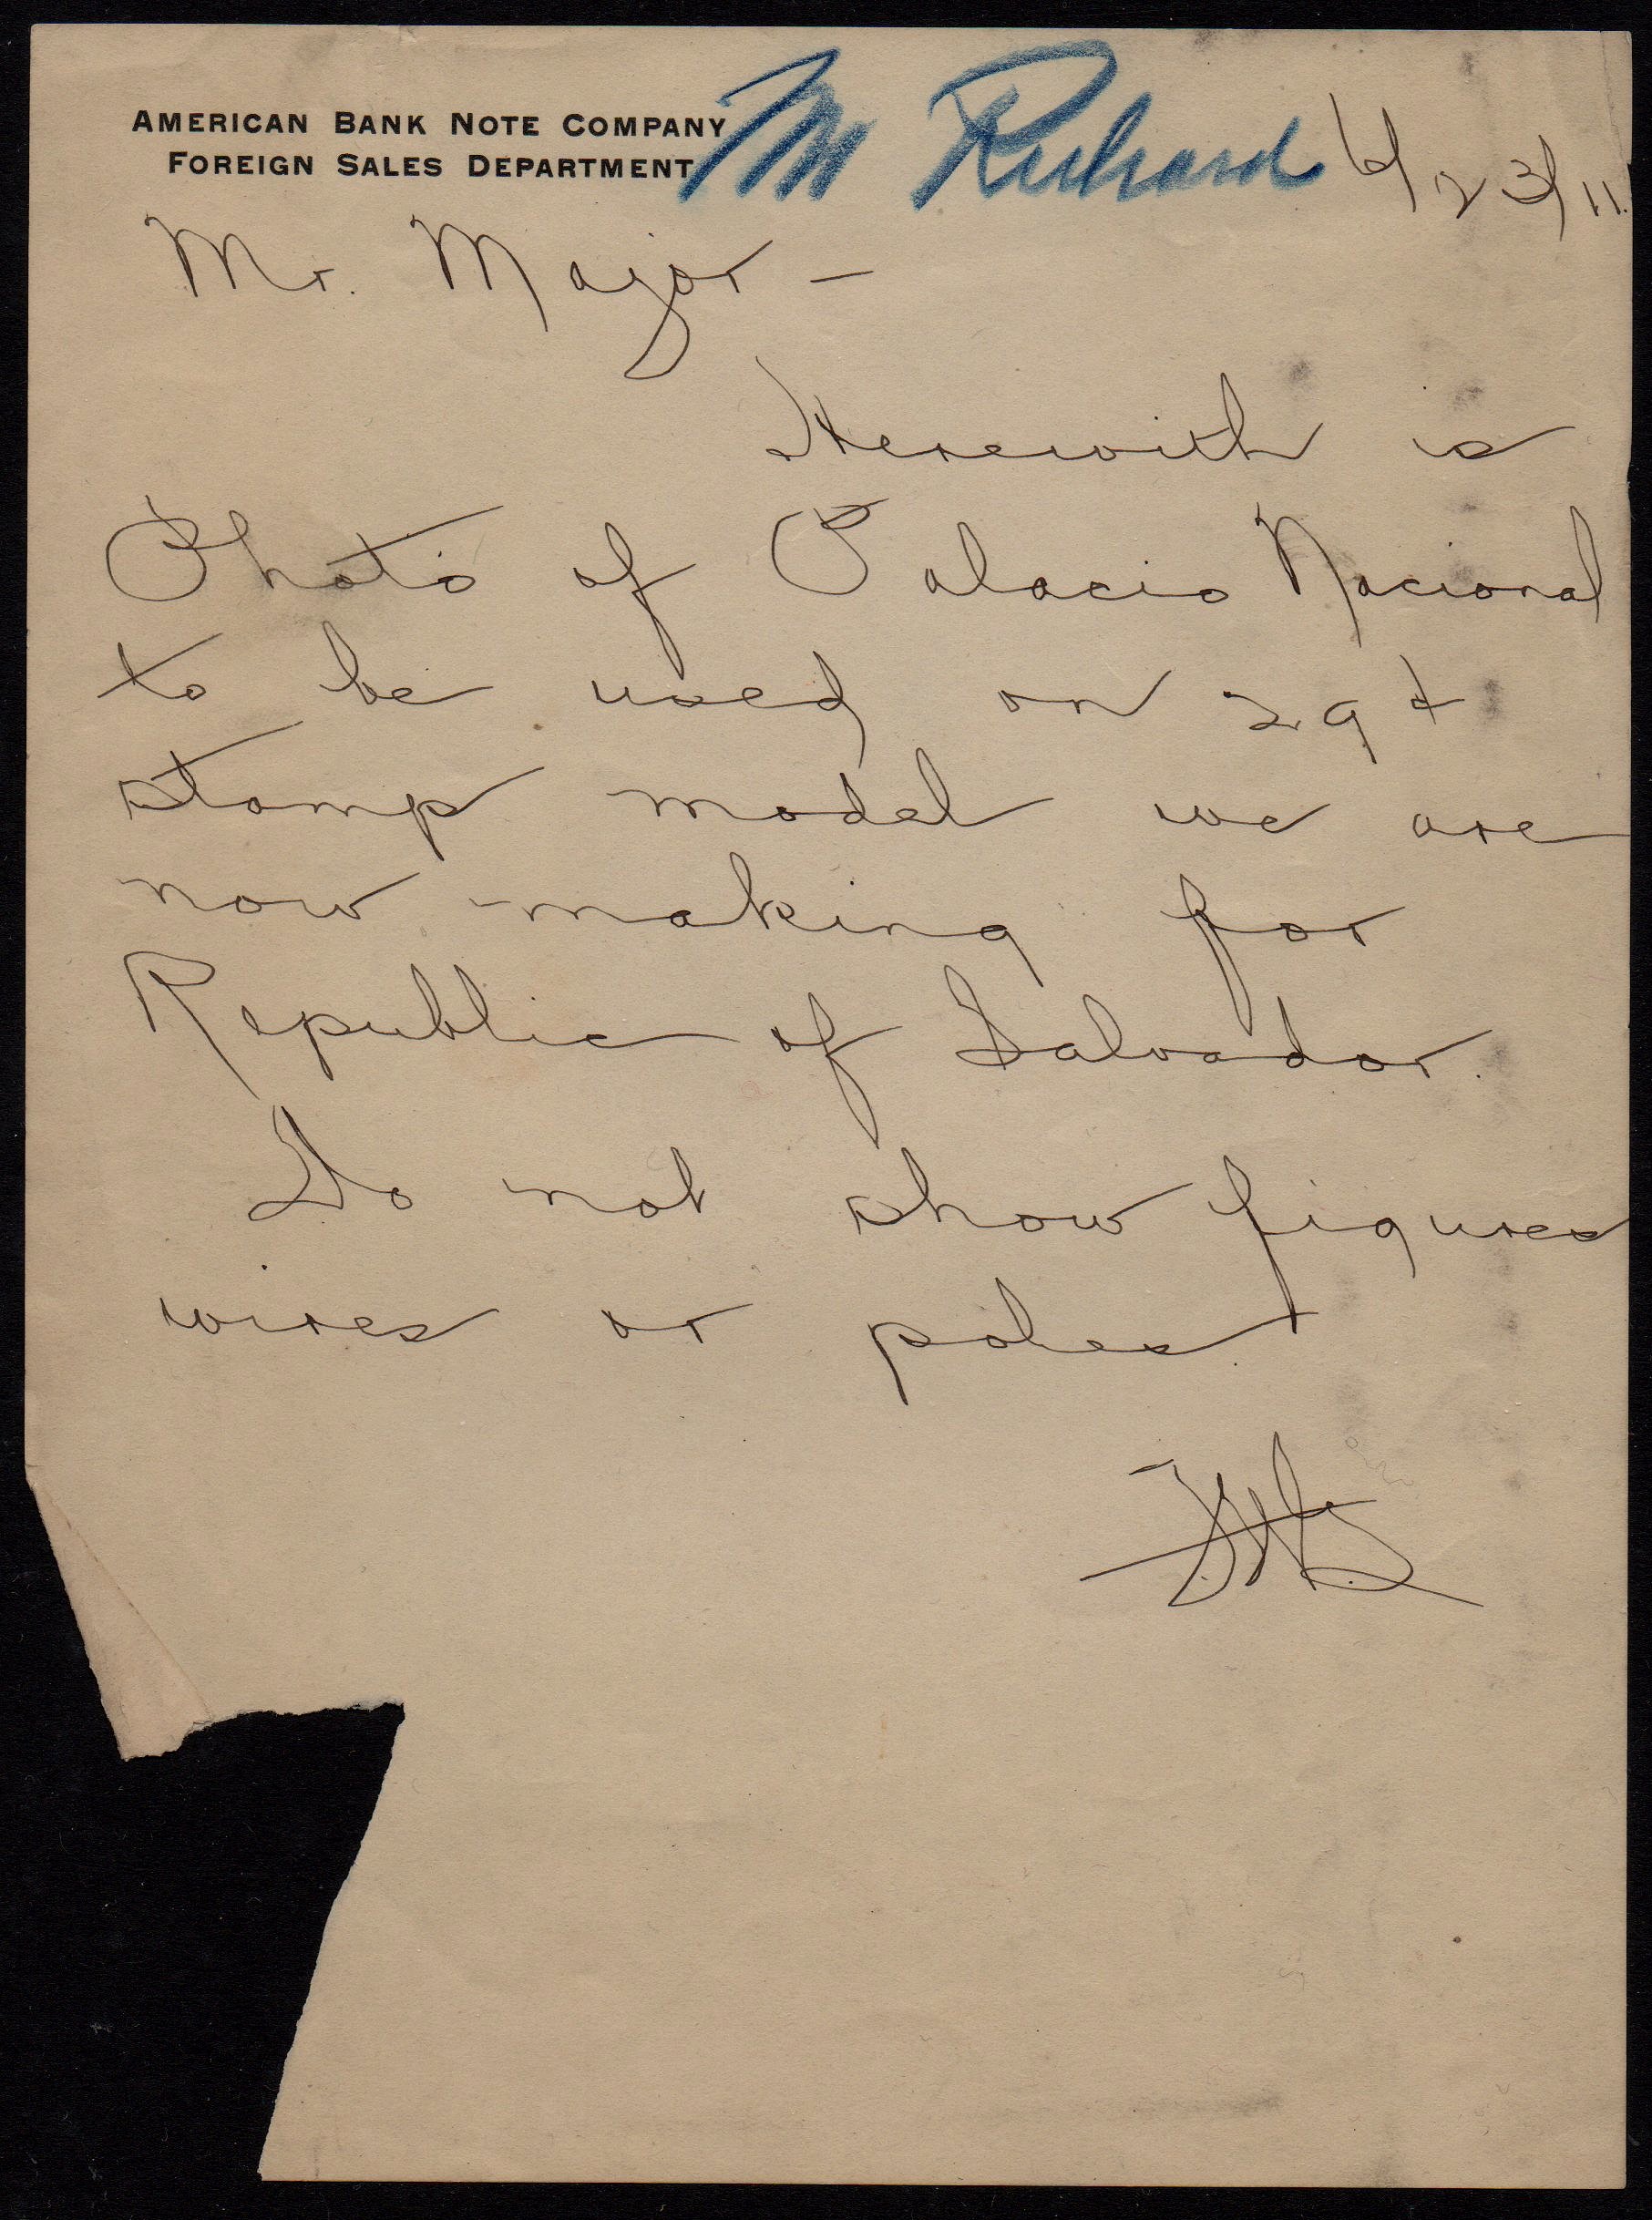 AMERICAN BANK NOTE COMPANY
FOREIGN SALES DEPARTMENT
M Richard 6/23/11.
Mr. Major –
Herewith is
Photo of Palacio Nacional
to be used on 29¢
stamp model we are
now making for
Republic of Salvador.
Do not show figures
wires or poles.